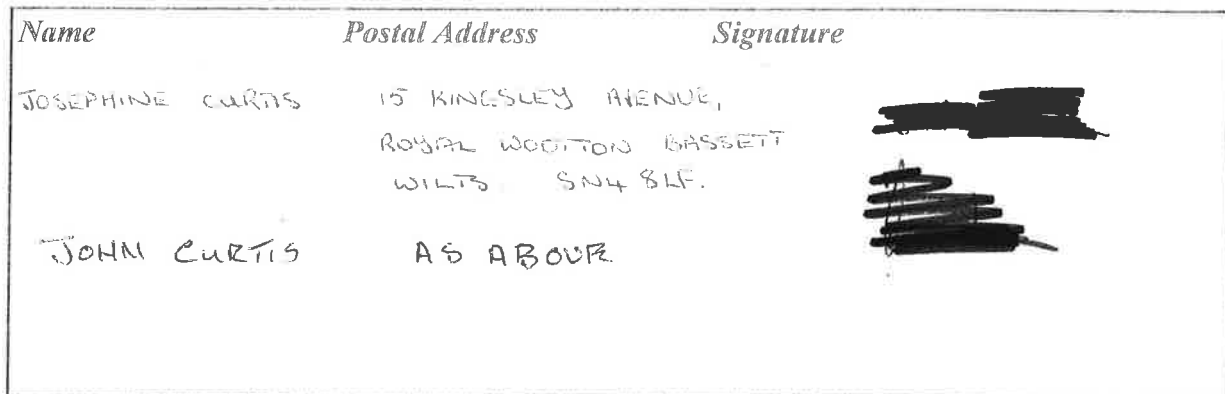 Name Postal Address Signature
JOSEPHINE CURTIS 15 KINGSLEY AVENUE,
ROYAL WOOTTON BASSETT
WILTS SN4 8LF.
JOHN CURTIS AS ABOVE